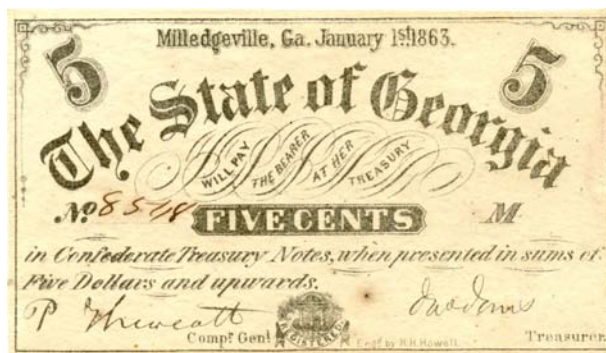 5 Milledgeville, Ga. January 1st. 1863. 5
The State of Georgia
WILL PAY THE BEARER AT HER TREASURY
No. 8518 FIVE CENTS M
in Confederate Treasury Notes, when presented in sums of
Five Dollars and upwards.
P
Compt. Genl. REGISTERED Engd. by R.H. Howell. Treasurer